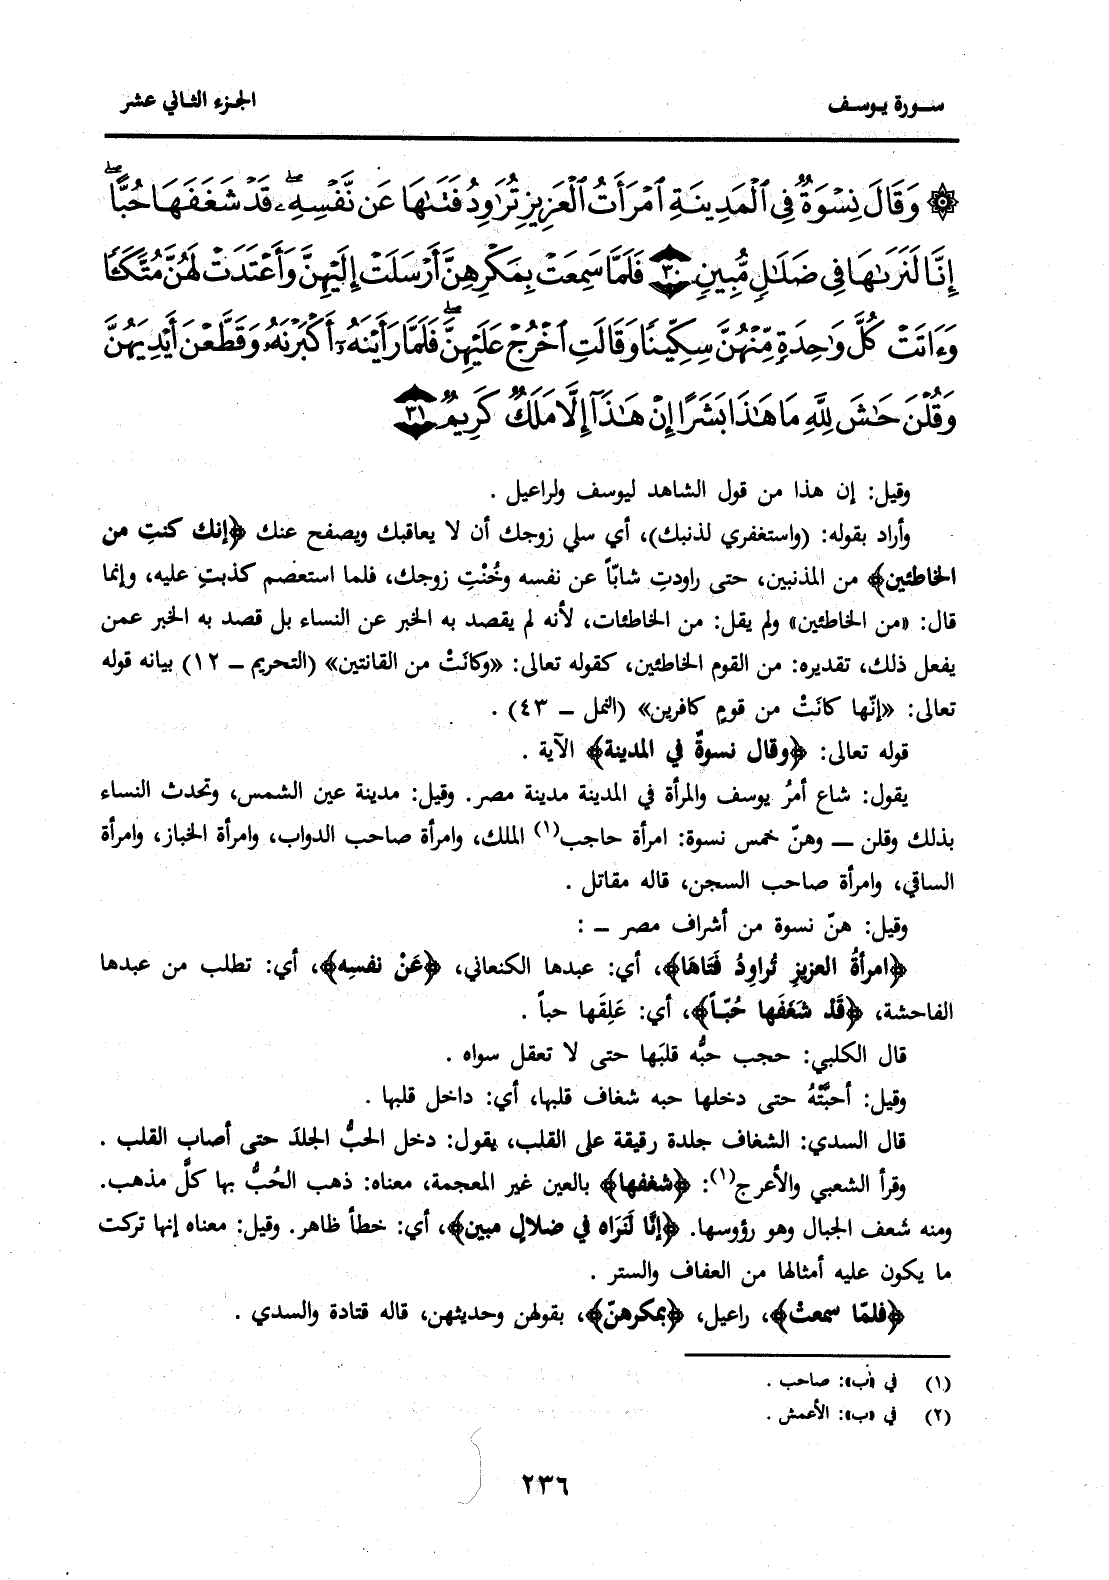 سورة يوسف
الجزء الثاني عشر
۞ وَقَالَ نِسْوَةٌ فِى ٱلْمَدِينَةِ ٱمْرَأَتُ ٱلْعَزِيزِ تُرَٰوِدُ فَتَىٰهَا عَن نَّفْسِهِۦ ۖ قَدْ شَغَفَهَا حُبًّا ۖ
إِنَّا لَنَرَىٰهَا فِى ضَلَٰلٍ مُّبِينٍ ٣٠ فَلَمَّا سَمِعَتْ بِمَكْرِهِنَّ أَرْسَلَتْ إِلَيْهِنَّ وَأَعْتَدَتْ لَهُنَّ مُتَّكَـًٔا
وَءَاتَتْ كُلَّ وَٰحِدَةٍ مِّنْهُنَّ سِكِّينًا وَقَالَتِ ٱخْرُجْ عَلَيْهِنَّ ۖ فَلَمَّا رَأَيْنَهُۥٓ أَكْبَرْنَهُۥ وَقَطَّعْنَ أَيْدِيَهُنَّ
وَقُلْنَ حَٰشَ لِلَّهِ مَا هَٰذَا بَشَرًا إِنْ هَٰذَآ إِلَّا مَلَكٌ كَرِيمٌ ٣١
وقيل: إن هذا من قول الشاهد ليوسف ولراعيل .
وأراد بقوله: (واستغفري لذنبك)، أي سلي زوجك أن لا يعاقبك ويصفح عنك ﴿إنك كنتِ من
الخاطئين﴾ من المذنبين، حتى راودتِ شابّاً عن نفسه وخُنْتِ زوجك، فلما استعصم كذبتِ عليه، وإنما
قال: «من الخاطئين» ولم يقل: من الخاطئات، لأنه لم يقصد به الخبر عن النساء بل قصد به الخبر عمن
يفعل ذلك، تقديره: من القوم الخاطئين، كقوله تعالى: «وكانَتْ من القانتين» (التحريم – ١٢) بيانه قوله
تعالى: «إنّها كانَتْ من قومٍ كافرين» (النمل – ٤٣) .
قوله تعالى: ﴿وقال نسوةٌ في المدينة﴾ الآية .
يقول: شاع أمرُ يوسف والمرأة في المدينة مدينة مصر. وقيل: مدينة عين الشمس، وتحدث النساء
بذلك وقلن – وهنّ خمس نسوة: امرأة حاجب(١) الملك، وامرأة صاحب الدواب، وامرأة الخباز، وامرأة
الساقي، وامرأة صاحب السجن، قاله مقاتل .
وقيل: هنّ نسوة من أشراف مصر – :
﴿امرأةُ العزيزِ تُراوِدُ فَتَاهَا﴾، أي: عبدها الكنعاني، ﴿عَنْ نفسِه﴾، أي: تطلب من عبدها
الفاحشة، ﴿قَدْ شَغَفَها حُبّاً﴾، أي: عَلِقَها حباً .
قال الكلبي: حجب حبُّه قلبَها حتى لا تعقل سواه .
وقيل: أحبَّتْهُ حتى دخلها حبه شغاف قلبها، أي: داخل قلبها .
قال السدي: الشغاف جلدة رقيقة على القلب، يقول: دخل الحبُّ الجلدَ حتى أصاب القلب .
وقرأ الشعبي والأعرج(١): ﴿شعفها﴾ بالعين غير المعجمة، معناه: ذهب الحُبُّ بها كلَّ مذهب.
ومنه شعف الجبال وهو رؤوسها. ﴿إنَّا لَنَرَاه في ضلالٍ مبين﴾، أي: خطأ ظاهر. وقيل: معناه إنها تركت
ما يكون عليه أمثالها من العفاف والستر .
﴿فلمّا سمعتْ﴾، راعيل، ﴿بمكرهنّ﴾، بقولهن وحديثهن، قاله قتادة والسدي .
(١) في «ب»: صاحب .
(٢) في «ب»: الأعمش .
٢٣٦